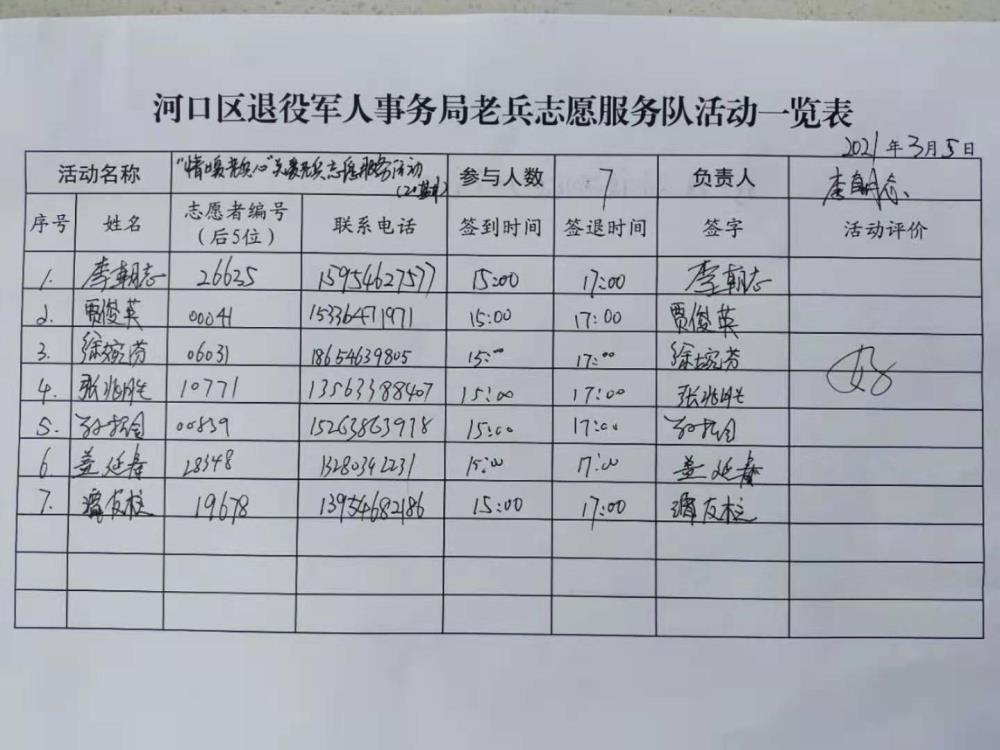 河口区退役军人事务局老兵志愿服务队活动一览表
2021年3月5日
活动名称 "情暖老兵心"关爱老兵志愿服务活动 参与人数 7 负责人 李朝志
序号 姓名 志愿者编号（后5位） 联系电话 签到时间 签退时间 签字 活动评价
1. 李朝志 26635 15954627577 15:00 17:00 李朝志
2. 贾俊英 00041 15336471971 15:00 17:00 贾俊英
3. 徐婉芬 06031 18654639805 15:00 17:00 徐婉芬 好
4. 张兆胜 10771 13563388407 15:00 17:00 张兆胜
5. 00839 15263863978 15:00 17:00
6 盖延春 28348 13280342231 15:00 17:00 盖延春
7. 谭友柱 19678 13954682186 15:00 17:00 谭友柱